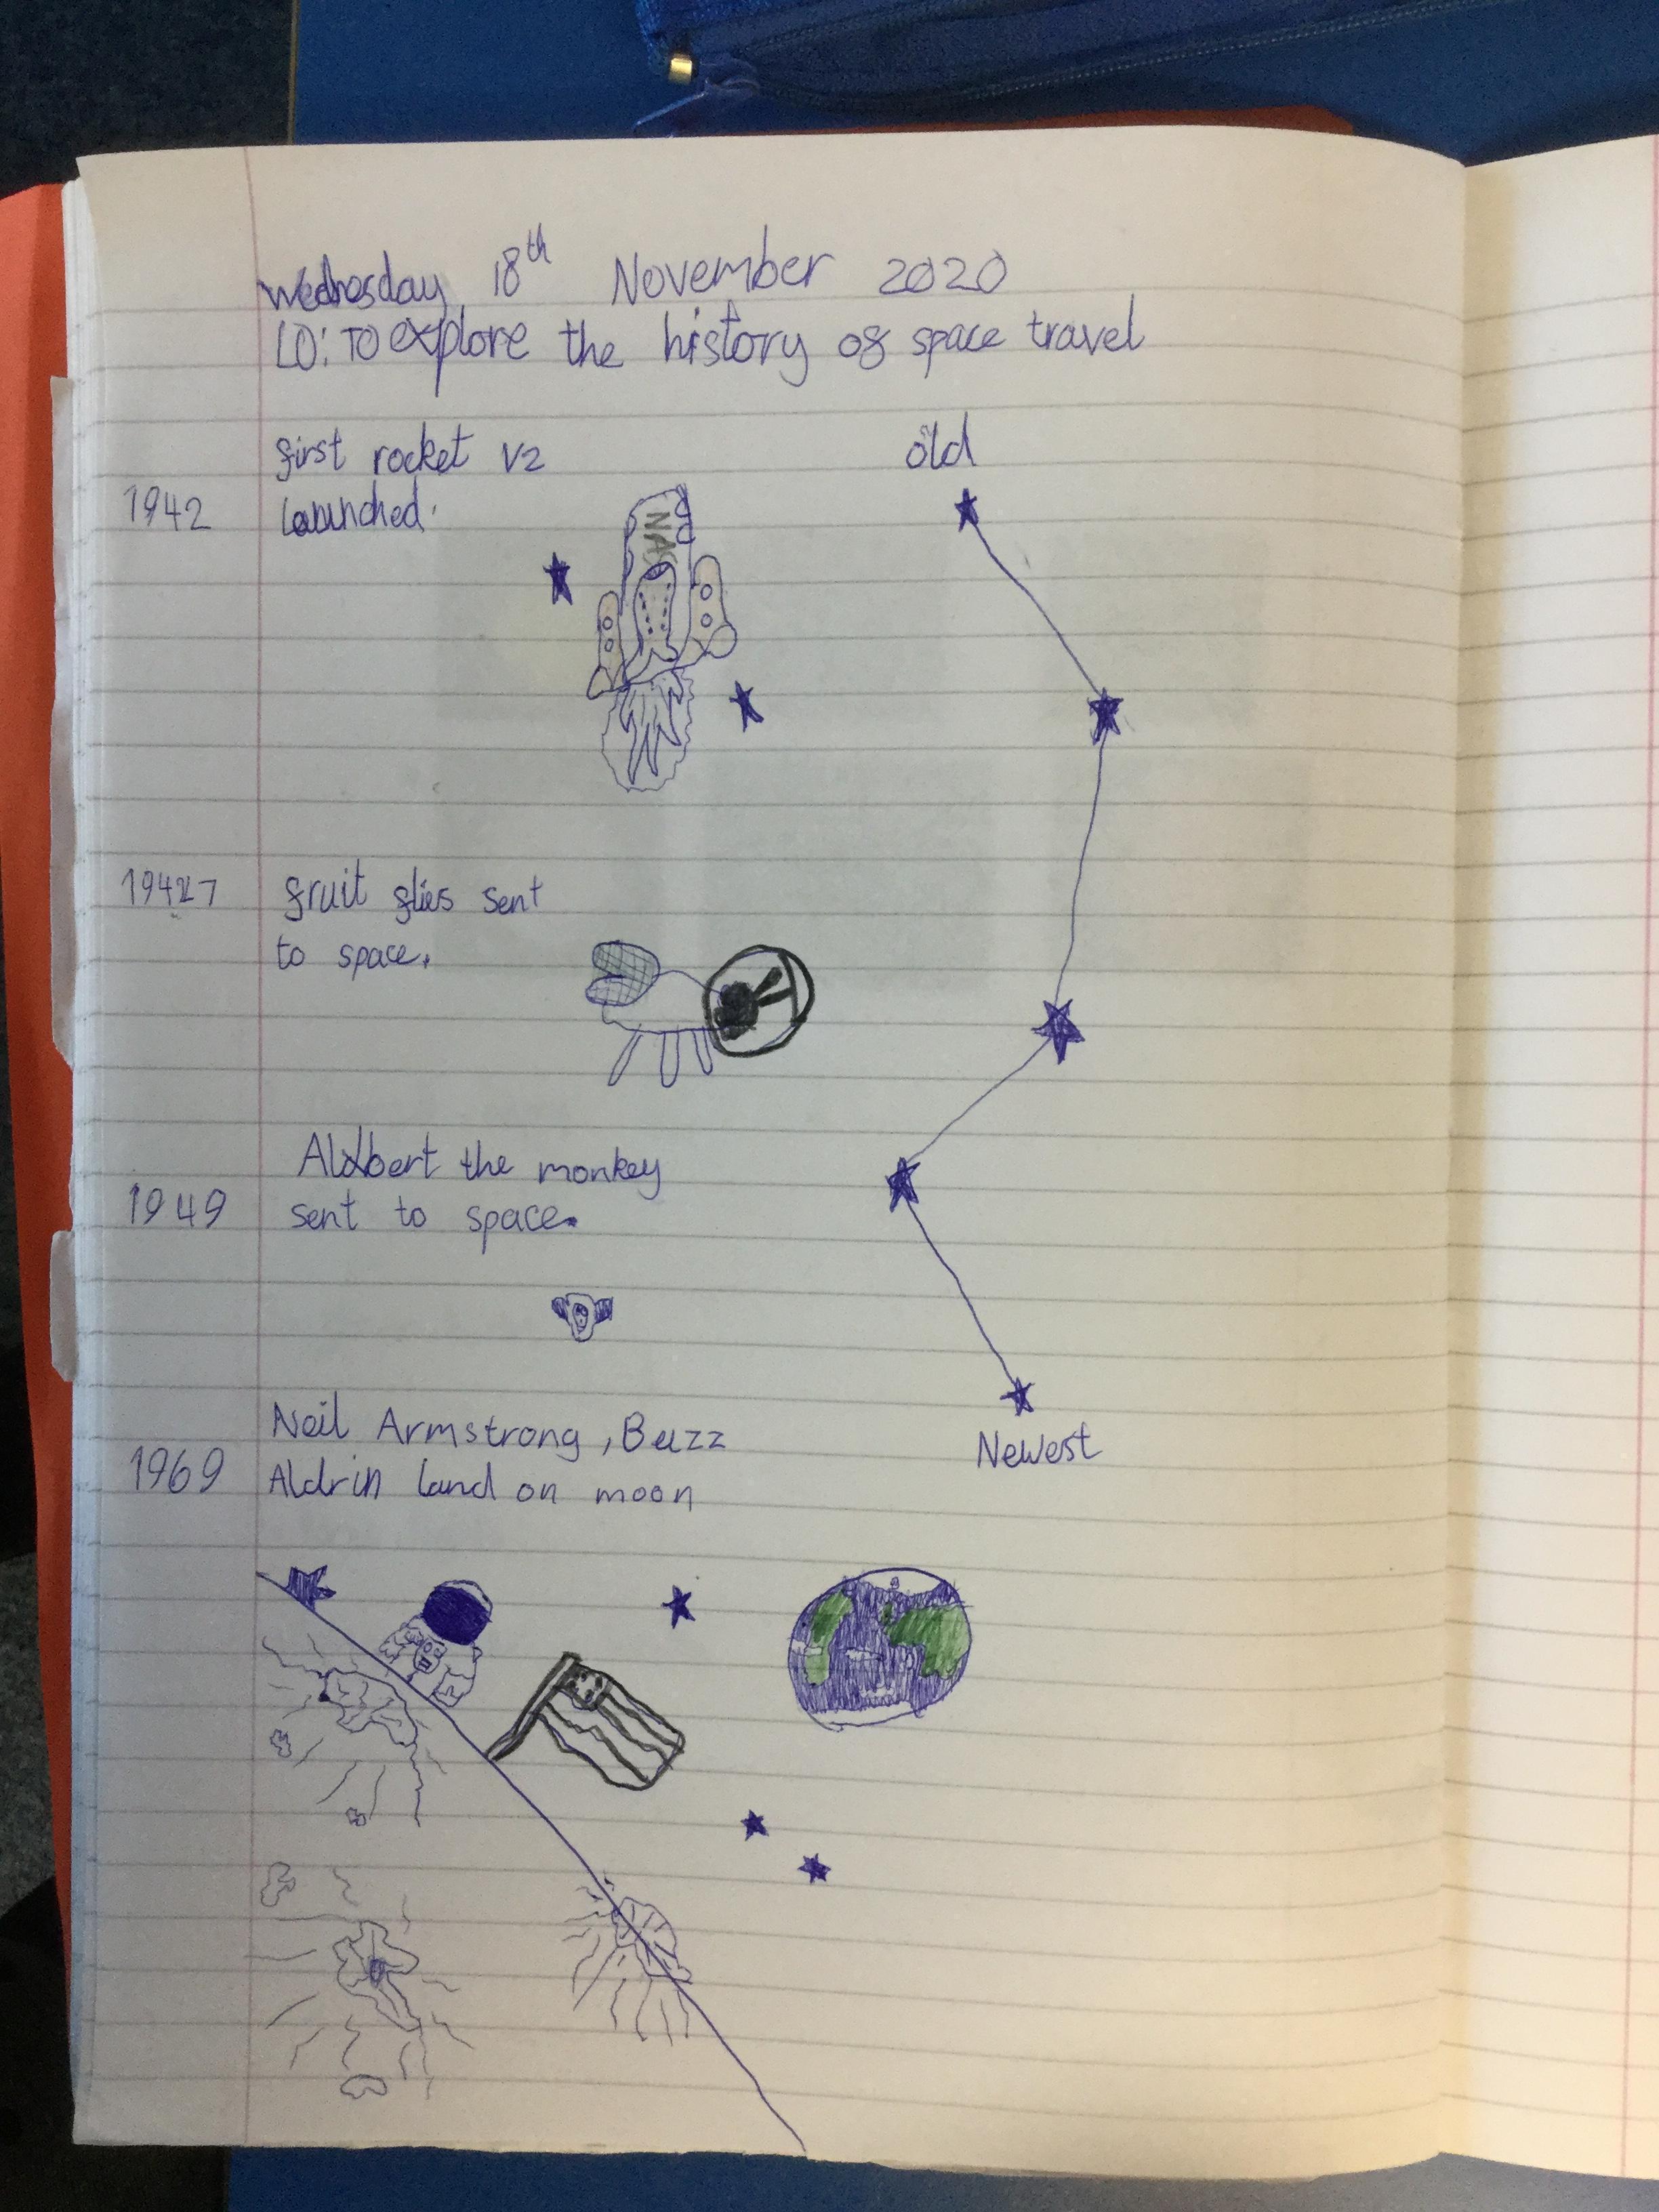 Wednesday 18th November 2020
LO: To explore the history of space travel
first rocket V2
1942 launched.
old
NAS
1947 fruit flies sent
to space.
Albert the monkey
1949 sent to space.
Neil Armstrong, Buzz
1969 Aldrin land on moon
Newest